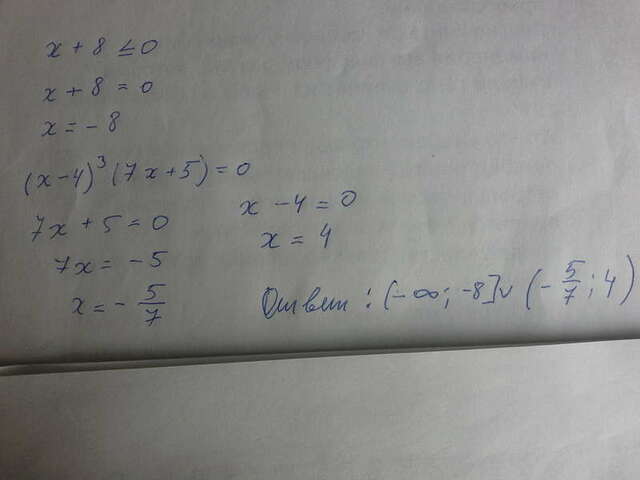 x + 8 ≤ 0
x + 8 = 0
x = - 8
(x-4)³(7x+5) = 0
7x + 5 = 0
7x = - 5
x = - 5/7
x - 4 = 0
x = 4
Ответ: (-∞; -8]∪(-5/7; 4)